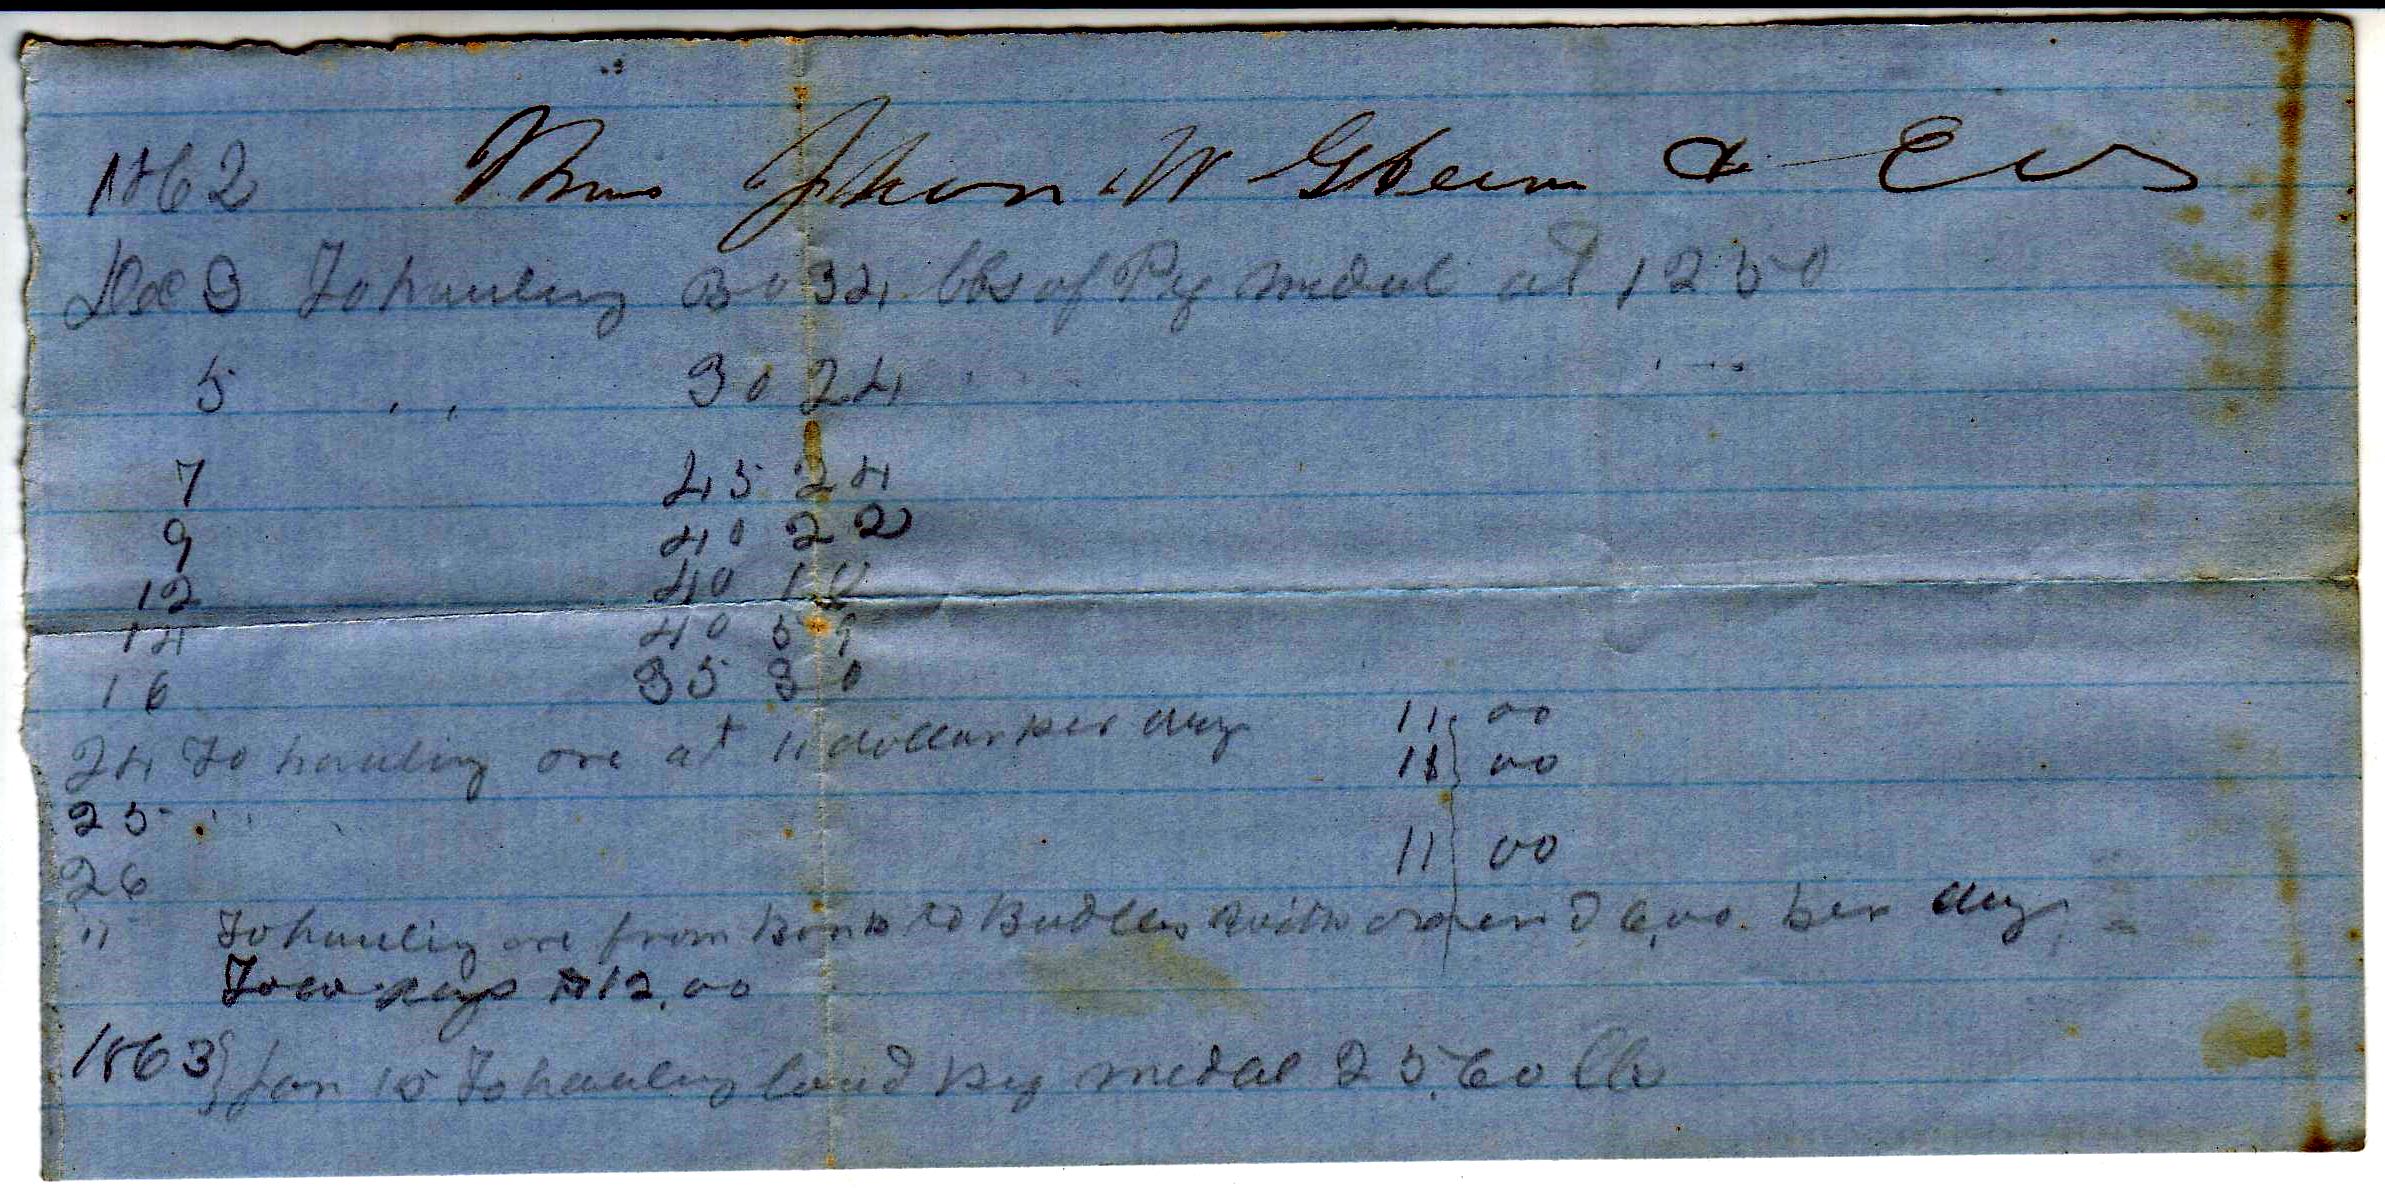 1862 Jhon W & Co
Dec 3 To hauling 3034 lbs of Pig medal at 1250
5 " " 3024 " " "
7 4524
9 4022
12 40 10
14 40 59
16 3530
24 To hauling ore at 11 dollar per day 11 00
25 " " 11 00
26 11 00
" To hauling ore from Bank to with oxen 6,00 per day
Tow days 12,00
1863 Jan 15 To hauling load pig medal 25,60 lb